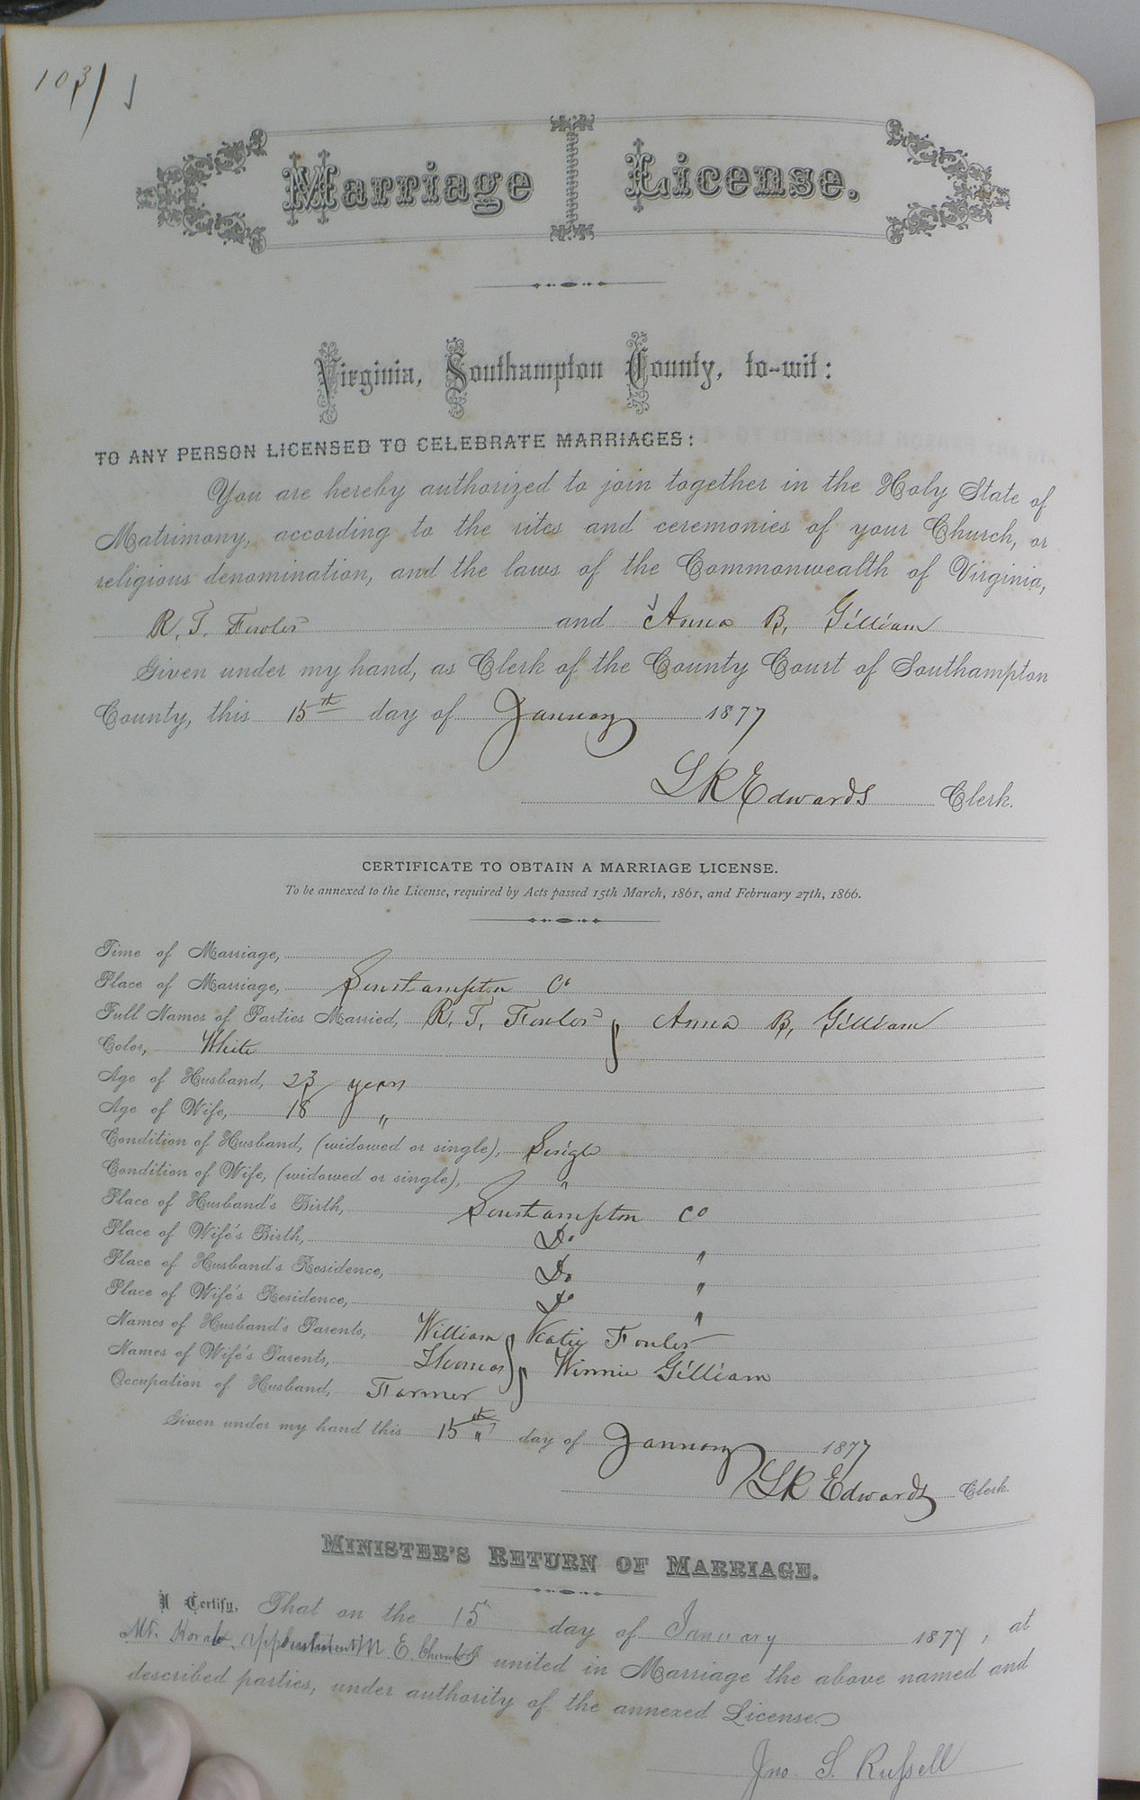 103
Marriage License.
Virginia, Southampton County, to-wit:
TO ANY PERSON LICENSED TO CELEBRATE MARRIAGES:
You are hereby authorized to join together in the Holy State of
Matrimony, according to the rites and ceremonies of your Church, or
religious denomination, and the laws of the Commonwealth of Virginia,
R. T. Fowler and Anna B. Gilliam
Given under my hand, as Clerk of the County Court of Southampton
County, this 15th day of January 1877
L R Edwards Clerk.
CERTIFICATE TO OBTAIN A MARRIAGE LICENSE.
To be annexed to the License, required by Acts passed 15th March, 1861, and February 27th, 1866.
Time of Marriage,
Place of Marriage, Southampton Co
Full Names of Parties Married, R. T. Fowler Anna B. Gilliam
Color, White
Age of Husband, 23 years
Age of Wife, 18 "
Condition of Husband, (widowed or single), Single
Condition of Wife, (widowed or single), "
Place of Husband's Birth, Southampton Co
Place of Wife's Birth, Do "
Place of Husband's Residence, Do "
Place of Wife's Residence, Do "
Names of Husband's Parents, William Katie Fowler
Names of Wife's Parents, Thomas Winnie Gilliam
Occupation of Husband, Farmer
Given under my hand this 15th day of January 1877
L R Edwards Clerk.
MINISTER'S RETURN OF MARRIAGE.
I Certify, That on the 15 day of January 1877, at
Mt. Horab M. E. Church I united in Marriage the above named and
described parties, under authority of the annexed License.
Jno. S. Russell